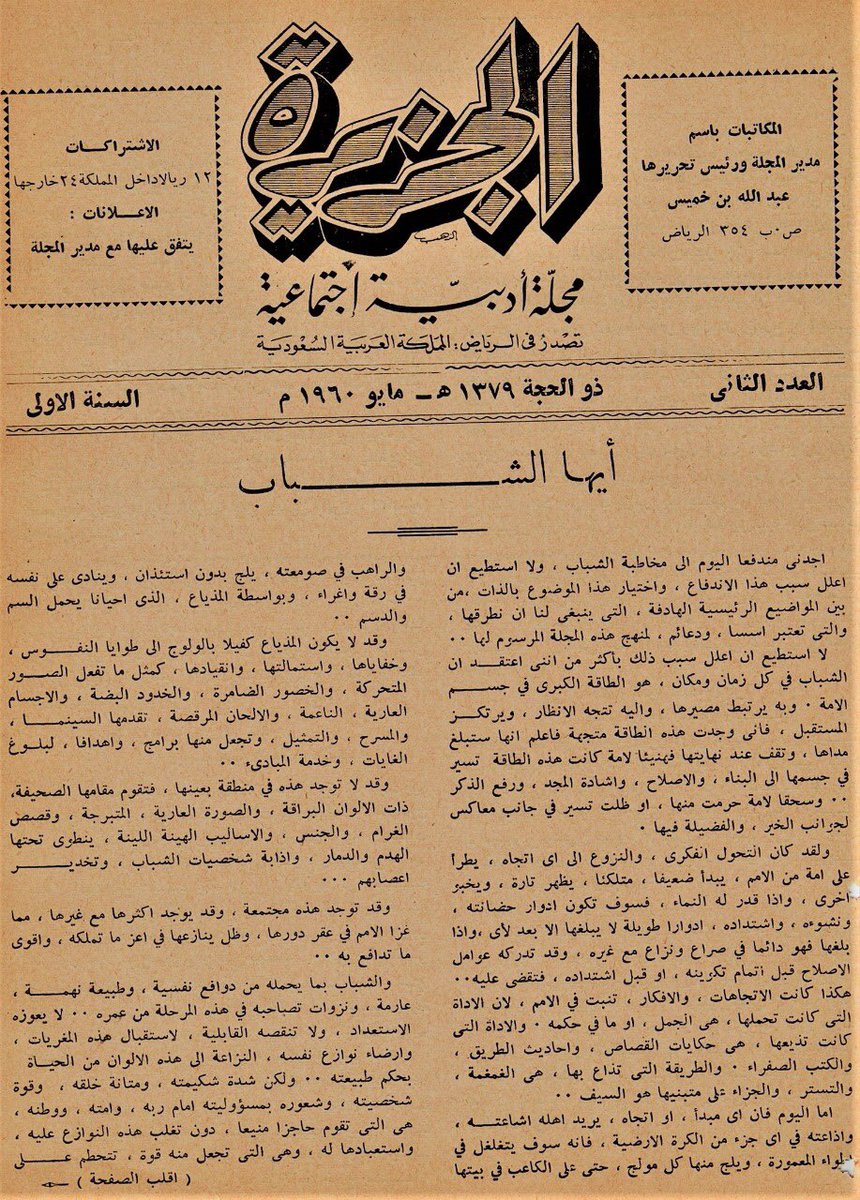 الجزيرة
الزهيب
مجلة أدبية إجتماعية
تصدر في الرياض : المملكة العربية السعودية
المكاتبات باسم
مدير المجلة ورئيس تحريرها
عبد الله بن خميس
ص٠ب ٣٥٤ الرياض
الاشتراكات
١٢ ريالا داخل المملكة ٢٤ خارجها
الاعلانات :
يتفق عليها مع مدير المجلة
العدد الثانى
ذو الحجة ١٣٧٩ هـ ــ مايو ١٩٦٠ م
السنة الاولى
أيها الشباب
اجدنى مندفعا اليوم الى مخاطبة الشباب ، ولا استطيع ان
اعلل سبب هذا الاندفاع ، واختيار هذا الموضوع بالذات ،من
بين المواضيع الرئيسية الهادفة ، التى ينبغى لنا ان نطرقها ،
والتى تعتبر اسسا ، ودعائم ، لمنهج هذه المجلة المرسوم لها ٠٠
لا استطيع ان اعلل سبب ذلك بأكثر من اننى اعتقد ان
الشباب في كل زمان ومكان ، هو الطاقة الكبرى في جسم
الامة ٠ وبه يرتبط مصيرها ، واليه تتجه الانظار ، ويرتكز
المستقبل ، فأنى وجدت هذه الطاقة متجهة فاعلم انها ستبلغ
مداها ، وتقف عند نهايتها فهنيئا لامة كانت هذه الطاقة تسير
في جسمها الى البناء ، والاصلاح ، واشادة المجد ، ورفع الذكر
٠٠ وسحقا لامة حرمت منها ، او ظلت تسير في جانب معاكس
لجرانب الخير ، والفضيلة فيها ٠
ولقد كان التحول الفكرى ، والنزوع الى اى اتجاه ، يطرأ
على امة من الامم ، يبدأ ضعيفا ، متلكئا ، يظهر تارة ، ويخبو
اخرى ، واذا قدر له النماء ، فسوف تكون ادوار حضانته ،
ونشوءه ، واشتداده ، ادوارا طويلة لا يبلغها الا بعد لأى ،واذا
بلغها فهو دائما في صراع ونزاع مع غيره ، وقد تدركه عوامل
الاصلاح قبل اتمام تكوينه ، او قبل اشتداده ، فتقضى عليه٠٠
هكذا كانت الاتجاهات ، والافكار ، تنبت في الامم ، لان الاداة
التى كانت تحملها ، هى الجمل ، او ما في حكمه ٠ والاداة التى
كانت تذيعها ، هى حكايات القصاص ، واحاديث الطريق ،
والكتب الصفراء ٠ والطريقة التى تذاع بها ، هى الغمغمة ،
والتستر ، والجزاء على متبنيها هو السيف ٠٠
اما اليوم فان اى مبدأ ، او اتجاه ، يريد اهله اشاعته ،
واذاعته في اى جزء من الكرة الارضية ، فانه سوف يتغلغل في
اطواء المعمورة ، ويلج منها كل مولج ، حتى على الكاعب في بيتها
والراهب في صومعته ، يلج بدون استئذان ، وينادى على نفسه
في رقة واغراء ، وبواسطة المذياع ، الذى احيانا يحمل السم
والدسم ٠٠
وقد لا يكون المذياع كفيلا بالولوج الى طوايا النفوس ،
وخفاياها ، واستمالتها ، وانقيادها ، كمثل ما تفعل الصور
المتحركة ، والخصور الضامرة ، والخدود البضة ، والاجسام
العارية ، الناعمة ، والالحان المرقصة ، تقدمها السينما ،
والمسرح ، والتمثيل ، وتجعل منها برامج ، واهدافا ، لبلوغ
الغايات ، وخدمة المبادىء ٠٠
وقد لا توجد هذه في منطقة بعينها ، فتقوم مقامها الصحيفة،
ذات الالوان البراقة ، والصورة العارية ، المتبرجة ، وقصص
الغرام ، والجنس ، والاساليب الهينة اللينة ، ينطوى تحتها
الهدم والدمار ، واذابة شخصيات الشباب ، وتخدير
اعصابهم ٠٠٠
وقد توجد هذه مجتمعة ، وقد يوجد اكثرها مع غيرها ، مما
غزا الامم في عقر دورها ، وظل ينازعها في اعز ما تملكه ، واقوى
ما تدافع به ٠٠
والشباب بما يحمله من دوافع نفسية ، وطبيعة نهمة ،
عارمة ، ونزوات تصاحبه في هذه المرحلة من عمره ٠٠ لا يعوزه
الاستعداد ، ولا تنقصه القابلية ، لاستقبال هذه المغريات ،
وارضاء نوازع نفسه ، النزاعة الى هذه الالوان من الحياة
بحكم طبيعته ٠٠ ولكن شدة شكيمته ، ومتانة خلقه ، وقوة
شخصيته ، وشعوره بمسؤوليته امام ربه ، وامته ، ووطنه ،
هى التى تقوم حاجزا منيعا ، دون تغلب هذه النوازع عليه ،
واستعبادها له ، وهى التى تجعل منه قوة ، تتحطم على
( اقلب الصفحة )